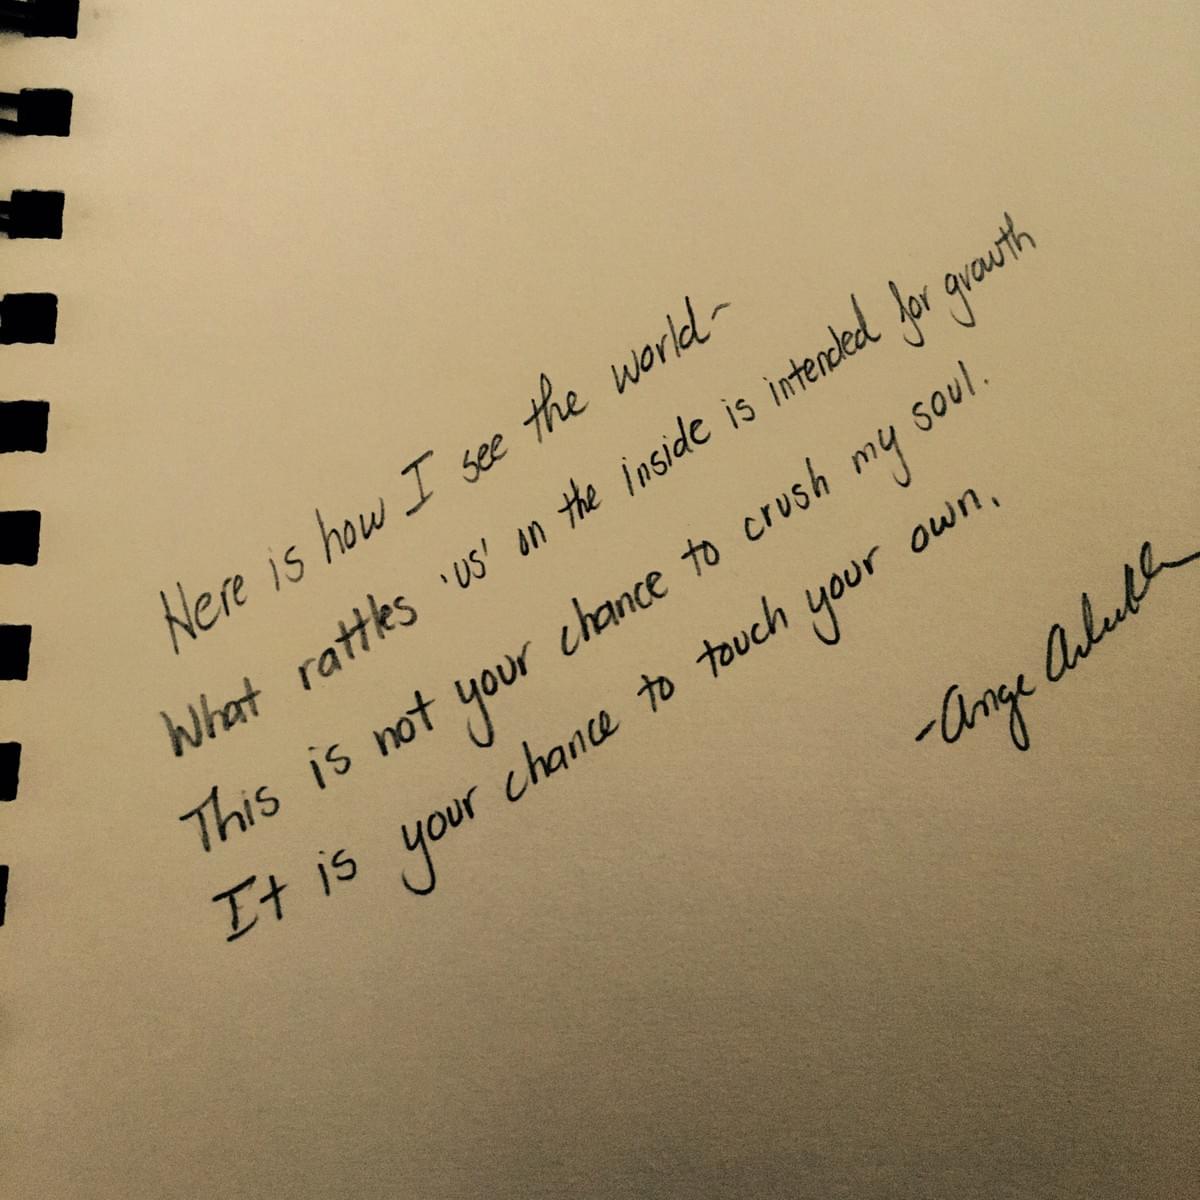 Here is how I see the world-
What rattles 'us' on the inside is intended for growth
This is not your chance to crush my soul.
It is your chance to touch your own.
-Ange